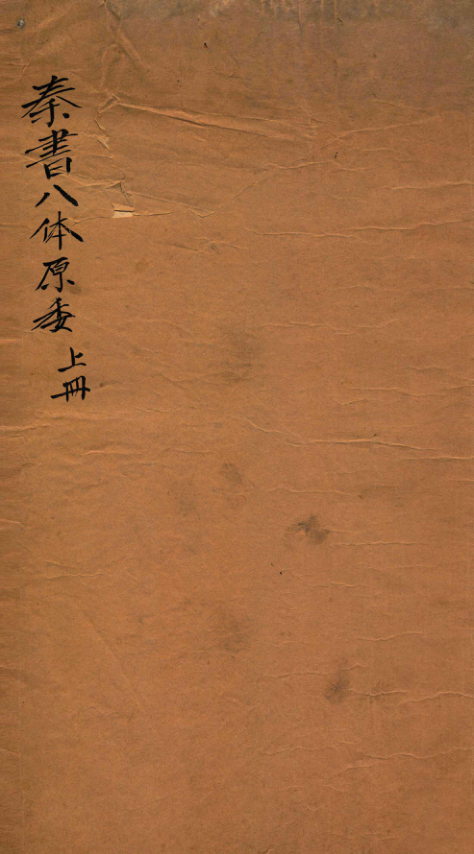 秦書八体原委
上冊